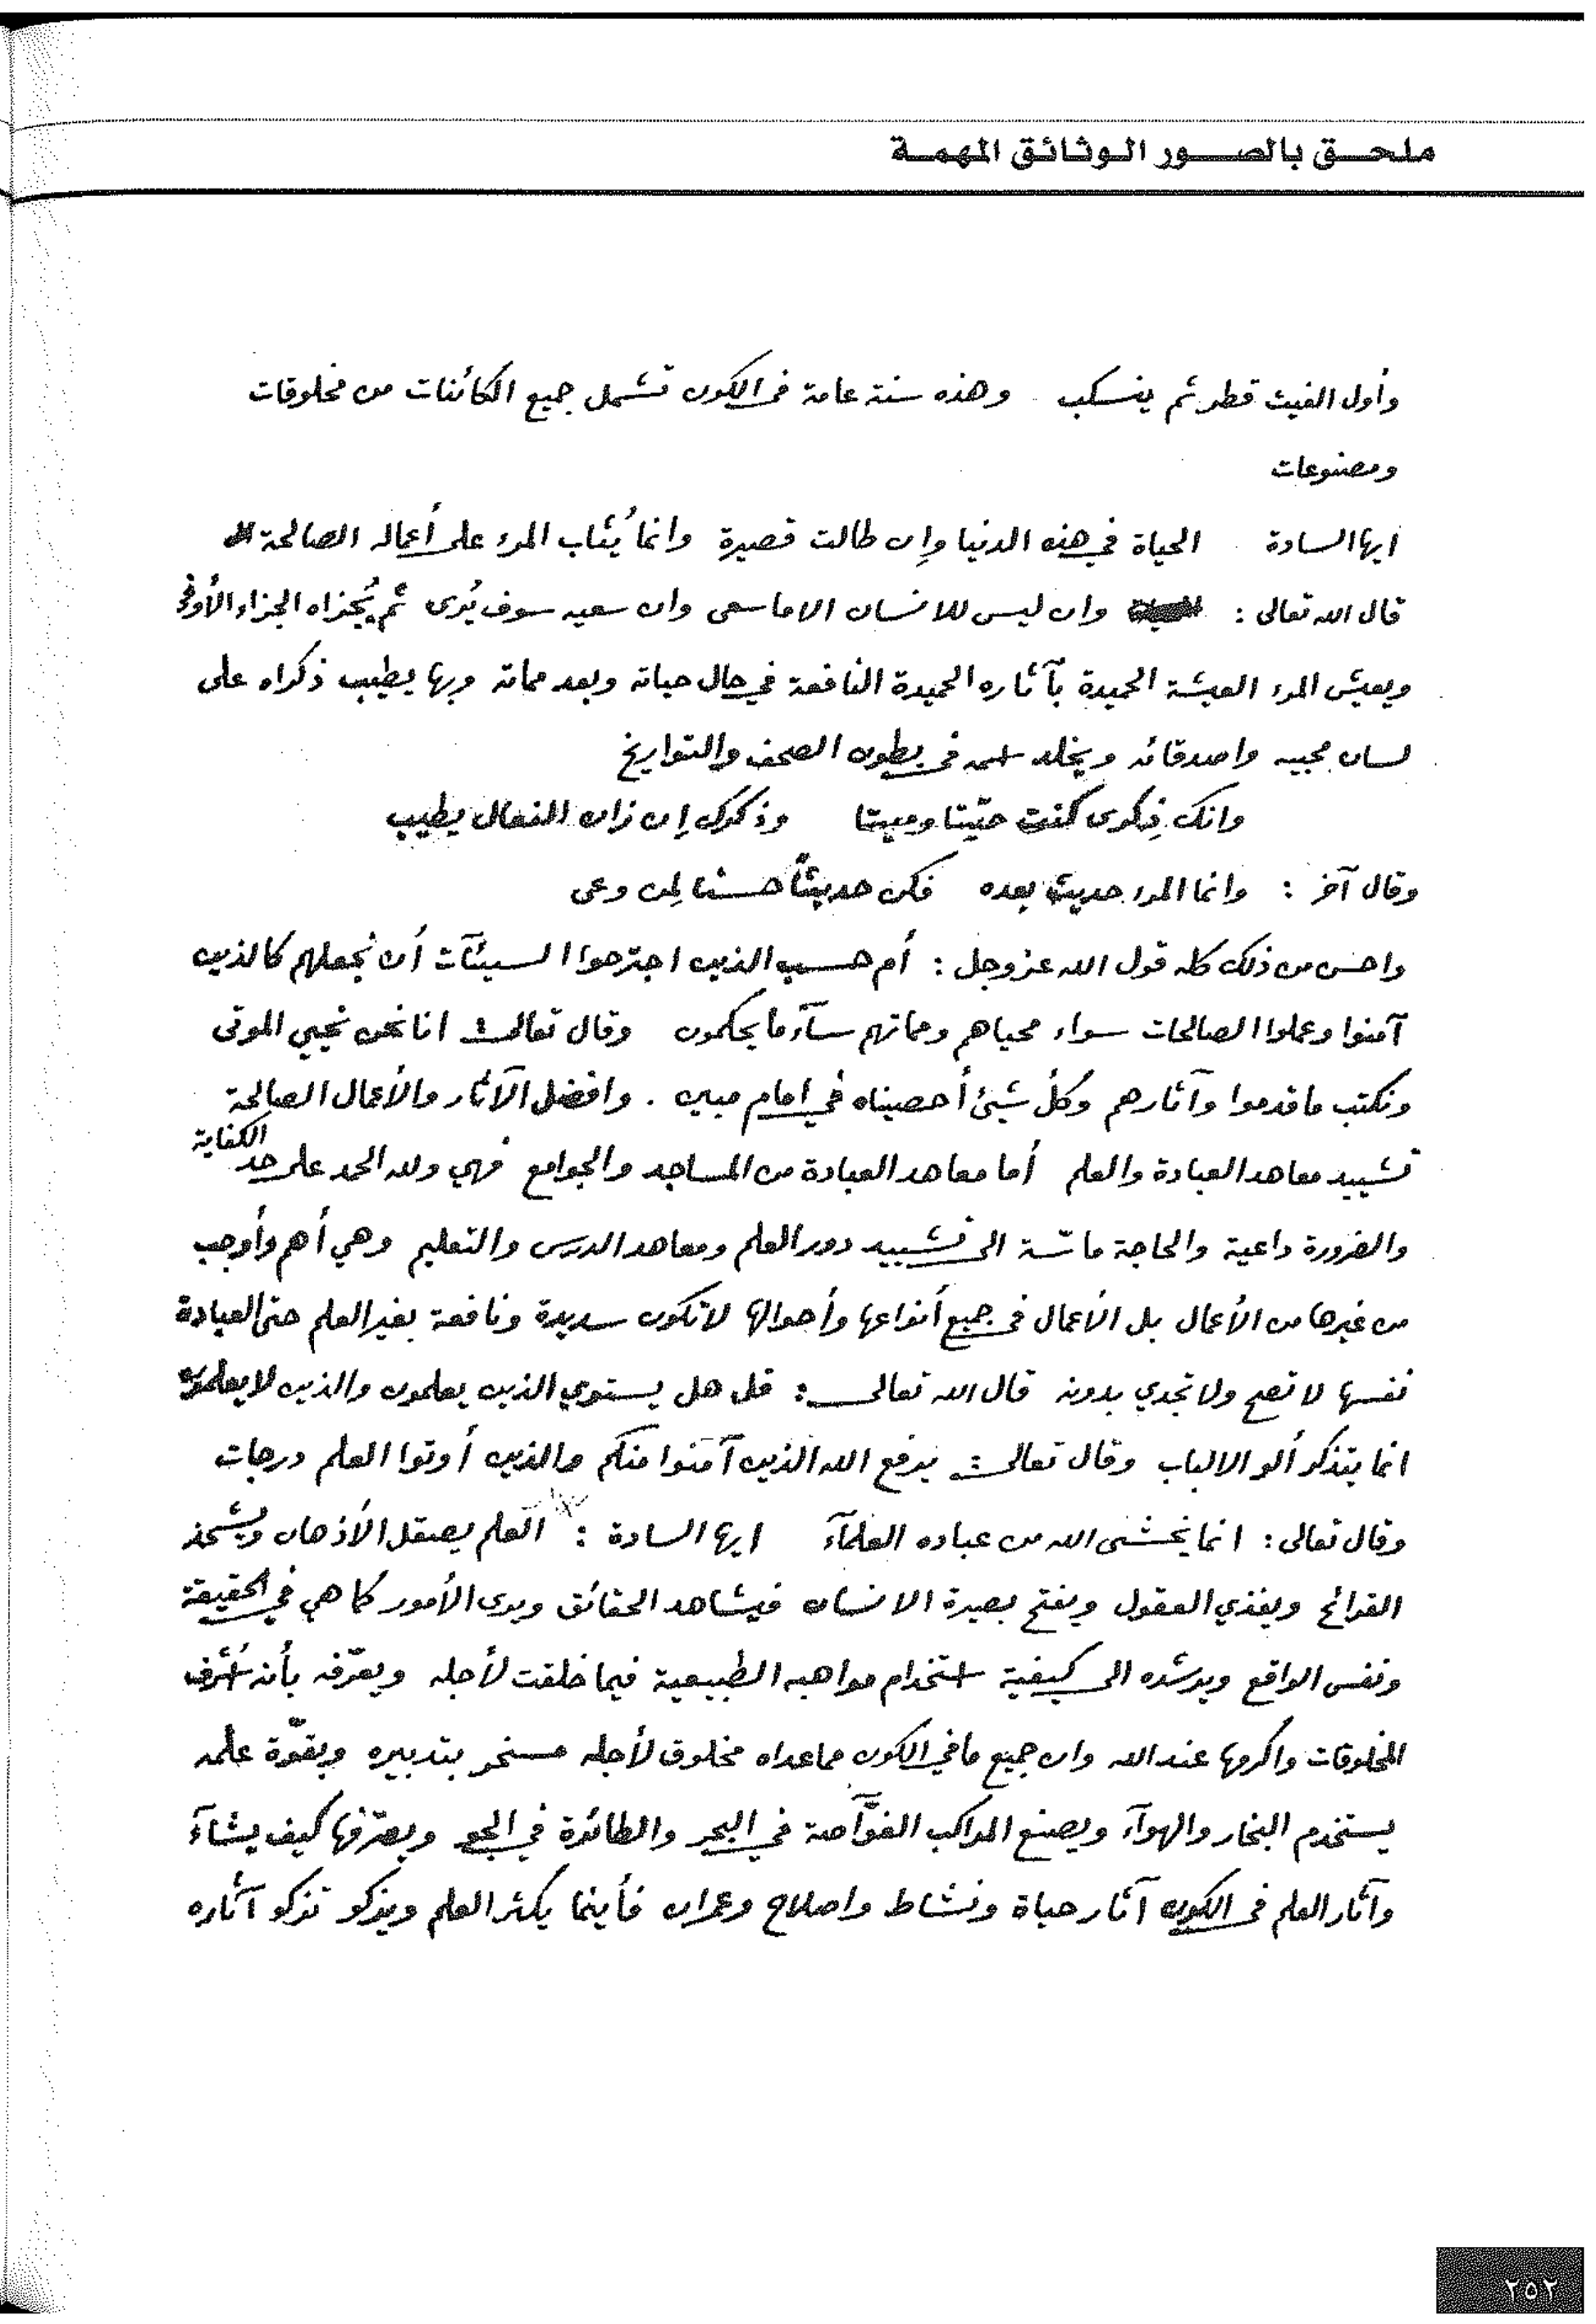 ملحق بالصور الوثائق المهمة
وأول الغيث قطر ثم ينسكب وهذه سنة عامة في الكون تشمل جميع الكائنات من مخلوقات
ومصنوعات
ايها السادة الحياة في هذه الدنيا وإن طالت قصيرة وانما يُثاب المرء على أعماله الصالحة
قال الله تعالى : وان ليس للانسان الا ما سعى وان سعيه سوف يُرى ثم يُجزاه الجزاء الأوفى
ويعيش المرء العيشة الحميدة بآثاره الحميدة النافعة في حال حياته وبعد مماته وبها يطيب ذكراه على
لسان محبيه واصدقائه ويخلد اسمه في بطون الصحف والتواريخ
وانك ذِكرى كنت حيّتا وميتا وذكرك إن زان الفعال يطيب
وقال آخر : وانما المرء حديث بعده فكن حديثاً حسنا لمن وعى
واحسن من ذلك كله قول الله عز وجل : أم حسب الذين اجترحوا السيئآت أن نجعلهم كالذين
آمنوا وعملوا الصالحات سواء محياهم ومماتهم سآء ما يحكمون وقال تعالى : انا نحن نحيي الموتى
ونكتب ما قدموا وآثارهم وكلُ شيئ أحصيناه في امام مبين . وافضل الآثار والأعمال الصالحة
تشييد معاهد العبادة والعلم أما معاهد العبادة من المساجد والجوامع فهي ولله الحمد على حد الكفاية
والضرورة داعية والحاجة ماسّة الى تشييد دور العلم ومعاهد الدرس والتعليم وهي أهم وأوجب
من غيرها من الأعمال بل الأعمال في جميع أنواعها وأحوالها لا تكون سديدة ونافعة بغير العلم حتى العبادة
نفسها لا تصح ولا تجدي بدونه قال الله تعالى : قل هل يستوي الذين يعلمون والذين لا يعلمون
انما يتذكر ألو الالباب وقال تعالى : يرفع الله الذين آمنوا منكم والذين أوتوا العلم درجات
وقال تعالى : انما يخشى الله من عباده العلمآء ايها السادة : العلم يصقل الأذهان ويشحذ
القرائح ويغذي العقول ويفتح بصيرة الانسان فيشاهد الحقائق ويرى الأمور كما هي في الحقيقة
ونفس الواقع ويرشده الى كيفية استخدام مواهبه الطبيعية فيما خلقت لأجله ويعرّفه بأنه أشرف
المخلوقات واكرمها عند الله وان جميع ما في الكون مما عداه مخلوق لأجله مسخر بتدبيره وبقوّة علمه
يستخدم البخار والهوآء ويصنع المراكب الغوّاصة في البحر والطائرة في الجو ويصرّفها كيف يشآء
وآثار العلم في الكون آثار حياة ونشاط واصلاح وعمران فأينما يكثر العلم ويزكو تزكو آثاره
٢٥٢